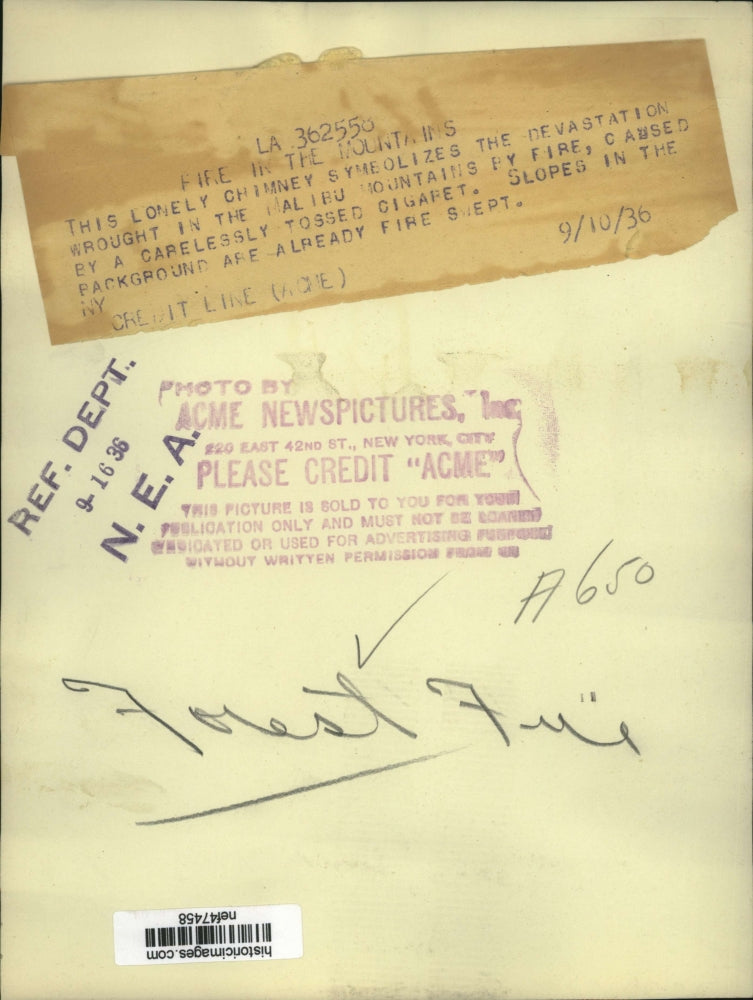 LA 362550
FIRE IN THE MOUNTAINS
THIS LONELY CHIMNEY SYMBOLIZES THE DEVASTATION
WROUGHT IN THE MALIBU MOUNTAINS BY FIRE, CAUSED
BY A CARELESSLY TOSSED CIGARET. SLOPES IN THE
BACKGROUND ARE ALREADY FIRE SWEPT.
NY
CREDIT LINE (ACME)
9/10/36
REF. DEPT.
9-16 36
N. E. A.
PHOTO BY
ACME NEWSPICTURES, Inc.
220 EAST 42ND ST., NEW YORK, CITY
PLEASE CREDIT "ACME"
THIS PICTURE IS SOLD TO YOU FOR YOUR
PUBLICATION ONLY AND MUST NOT BE LOANED
SYNDICATED OR USED FOR ADVERTISING PURPOSES
WITHOUT WRITTEN PERMISSION FROM US
A650
Forest Fire
nef47458
historicimages.com